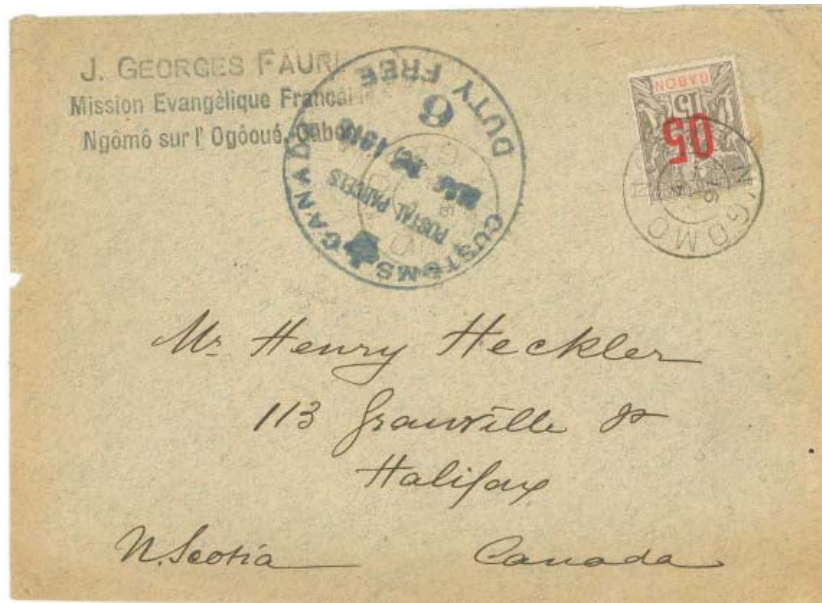 J. GEORGES FAURE
Mission Evangèlique Francai
Ngômô sur l' Ogôoué, Gabon
CUSTOMS CANADA
DUTY FREE
6
POSTAL PARCELS
GABON
15
05
N'GOMO
Mr Henry Heckler
113 Granville St
Halifax
N. Scotia Canada